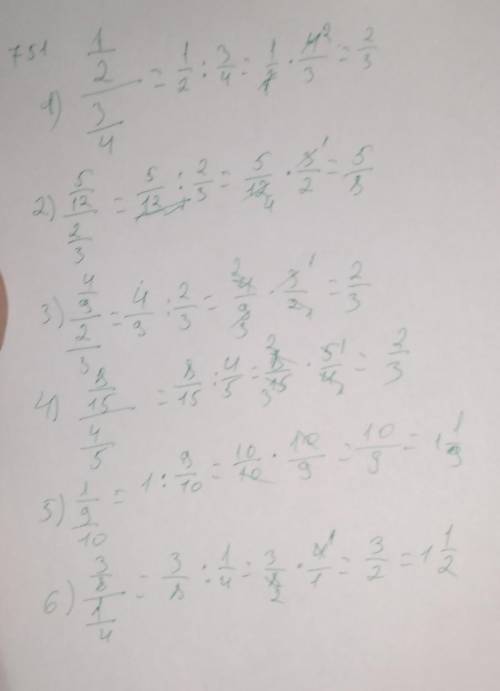 751
1) (1/2)/(3/4) = 1/2 : 3/4 = 1/2 · 4²/3 = 2/3
2) (5/12)/(2/3) = 5/12 : 2/3 = 5/12 4 · 3¹/2 = 5/8
3) (4/9)/(2/3) = 4/9 : 2/3 = ²4/9 3 · 3¹/2 1 = 2/3
4) (8/15)/(4/5) = 8/15 : 4/5 = ²8/3 15 · 5¹/4 = 2/3
5) 1/(9/10) = 1 : 9/10 = 10/10 · 10/9 = 10/9 = 1 1/9
6) (3/8)/(1/4) = 3/8 : 1/4 = 3/8 2 · 4¹/1 = 3/2 = 1 1/2